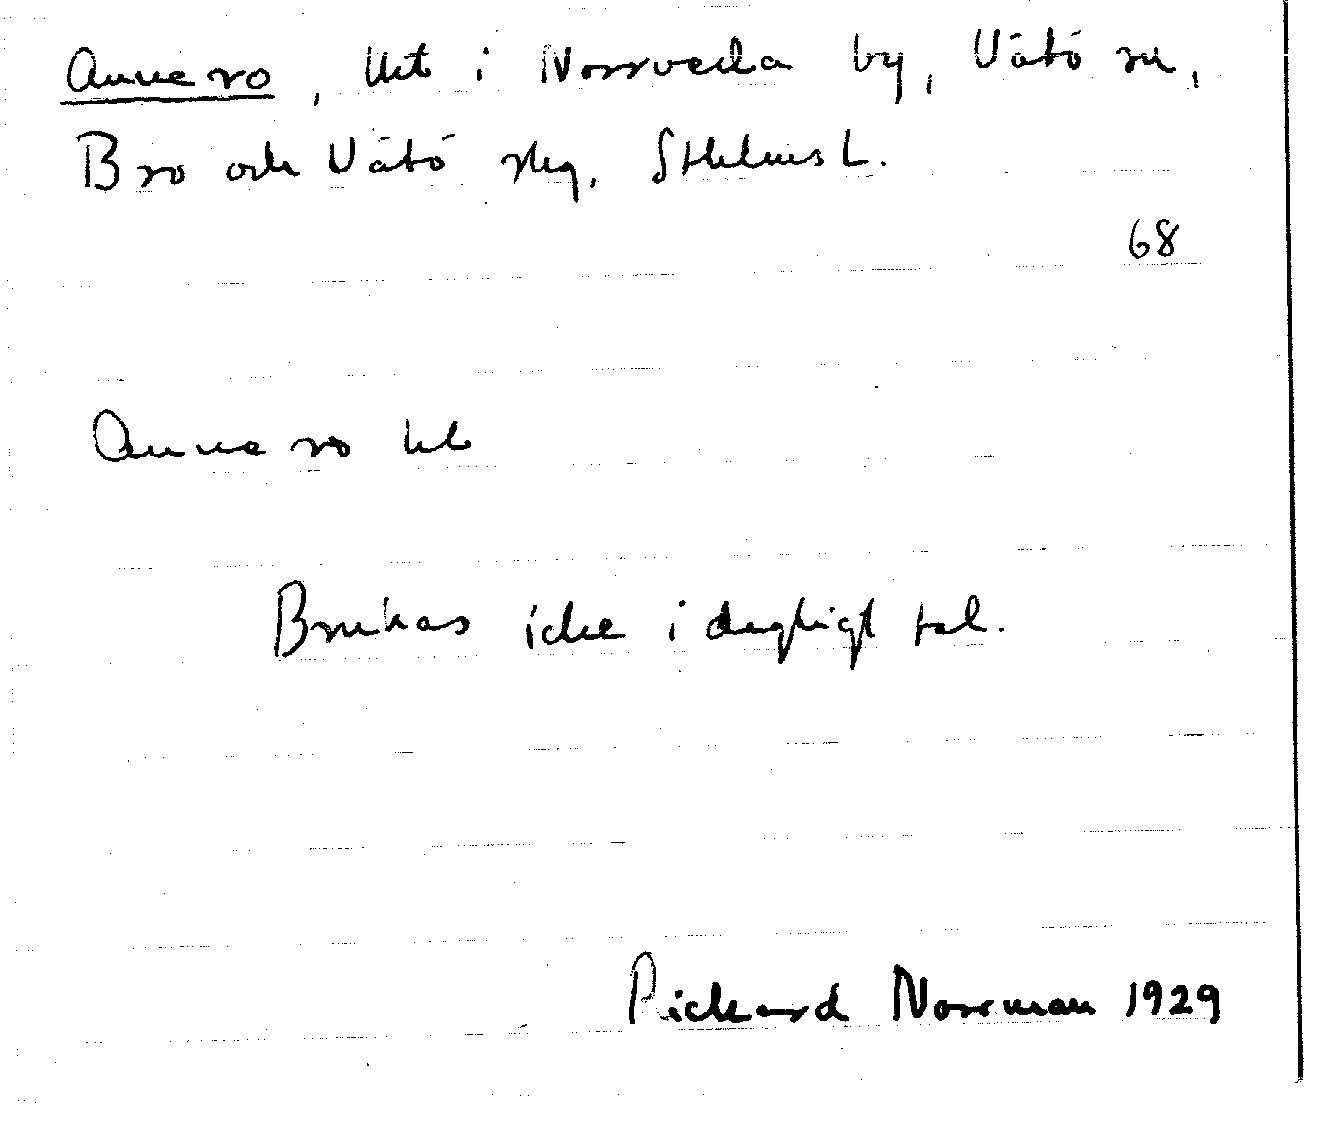 Annero, lht i Norrveda by, Vätö sn,
Bro och Vätö skg, Sthlms L.
68
Annero
Brukas icke i dagligt tal.
Rickard Norrman 1929